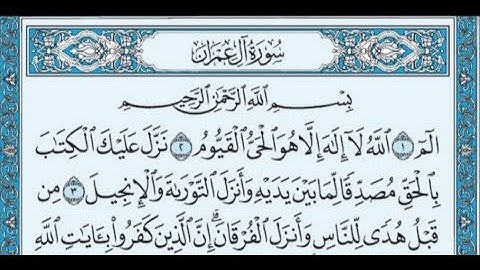 سُورَةُ آلِ عِمْرَانَ
بِسْمِ اللَّهِ الرَّحْمَٰنِ الرَّحِيمِ
الٓمٓ ١ ٱللَّهُ لَآ إِلَٰهَ إِلَّا هُوَ ٱلْحَىُّ ٱلْقَيُّومُ ٢ نَزَّلَ عَلَيْكَ ٱلْكِتَٰبَ
بِٱلْحَقِّ مُصَدِّقًا لِّمَا بَيْنَ يَدَيْهِ وَأَنزَلَ ٱلتَّوْرَىٰةَ وَٱلْإِنجِيلَ ٣ مِن
قَبْلُ هُدًى لِّلنَّاسِ وَأَنزَلَ ٱلْفُرْقَانَ ۗ إِنَّ ٱلَّذِينَ كَفَرُوا۟ بِـَٔايَٰتِ ٱللَّهِ